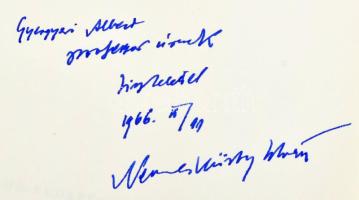 Gyergyai Albert
professzor úrnak
tisztelettel
1966. II/11
Nemeskürty István